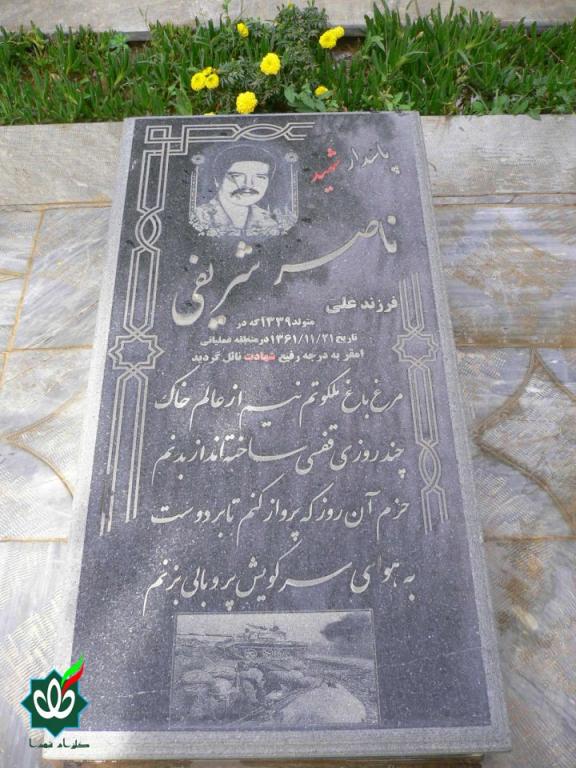 پاسدار شهید
ناصر شریفی
فرزند علی
متولد ۱۳۳۹ که در
تاریخ ۱۳۶۱/۱۱/۲۱ در منطقه عملیاتی
امقر به درجه رفیع شهادت نائل گردید
مرغ باغ ملکوتم نیم از عالم خاک
چند روزی قفسی ساخته‌اند از بدنم
خرم آن روز که پرواز کنم تا بر دوست
به هوای سر کویش پر و بالی بزنم
گلزار شهدا